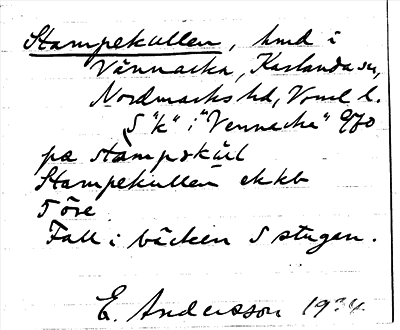 Stampekullen, hmd i
Vännacka, Karlanda sn,
Nordmarks hd, Vrml l.
S "k" i "Vennacka" 970
pa stampəkúl
Stampekullen ekkb
Töre
Fall i bäcken S stugan.
E. Andersson 1934